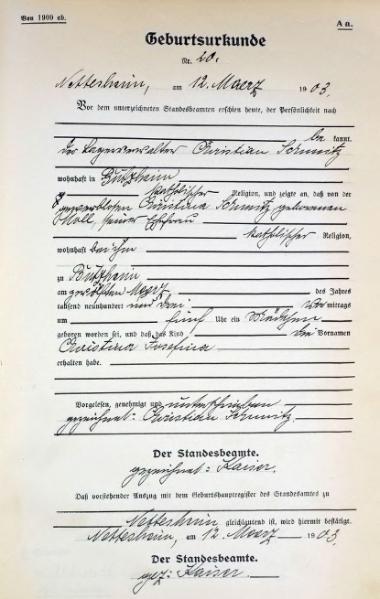 Von 1900 ab.
A a.
Geburtsurkunde
Nr. 20.
Nettesheim, am 12. Maerz 1903.
Vor dem unterzeichneten Standesbeamten erschien heute, der Persönlichkeit nach
be kannt,
der Lagerverwalter Christian Schmitz
wohnhaft in Butzheim
katholischer Religion, und zeigte an, daß von der
gewerblosen Christina Schmitz geborenen
Moll, seiner Ehefrau
katholischer Religion,
wohnhaft bei ihm
zu Butzheim
am zwölften Maerz des Jahres
tausend neunhundert und drei Vormittags
um fünf Uhr ein Mädchen
geboren worden sei, und daß das Kind die Vornamen
Christina Josefina
erhalten habe.
Vorgelesen, genehmigt und unterschrieben
gezeichnet: Christian Schmitz.
Der Standesbeamte.
gezeichnet: Kaiser.
Daß vorstehender Auszug mit dem Geburtshauptregister des Standesamtes zu
Nettesheim gleichlautend ist, wird hiermit bestätigt.
Nettesheim, am 12. Maerz 1903.
Der Standesbeamte.
gez: Kaiser.